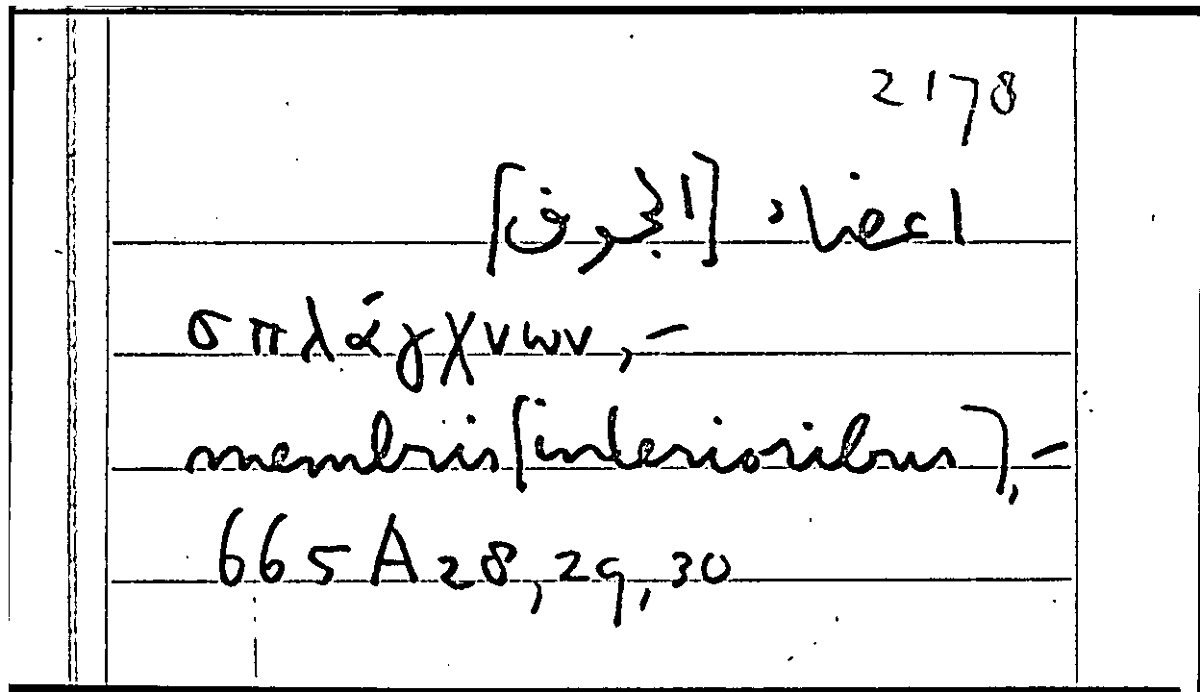 2178
اعضاء [الجوف]
σπλάγχνων, –
membris [interioribus], –
665 A 28, 29, 30